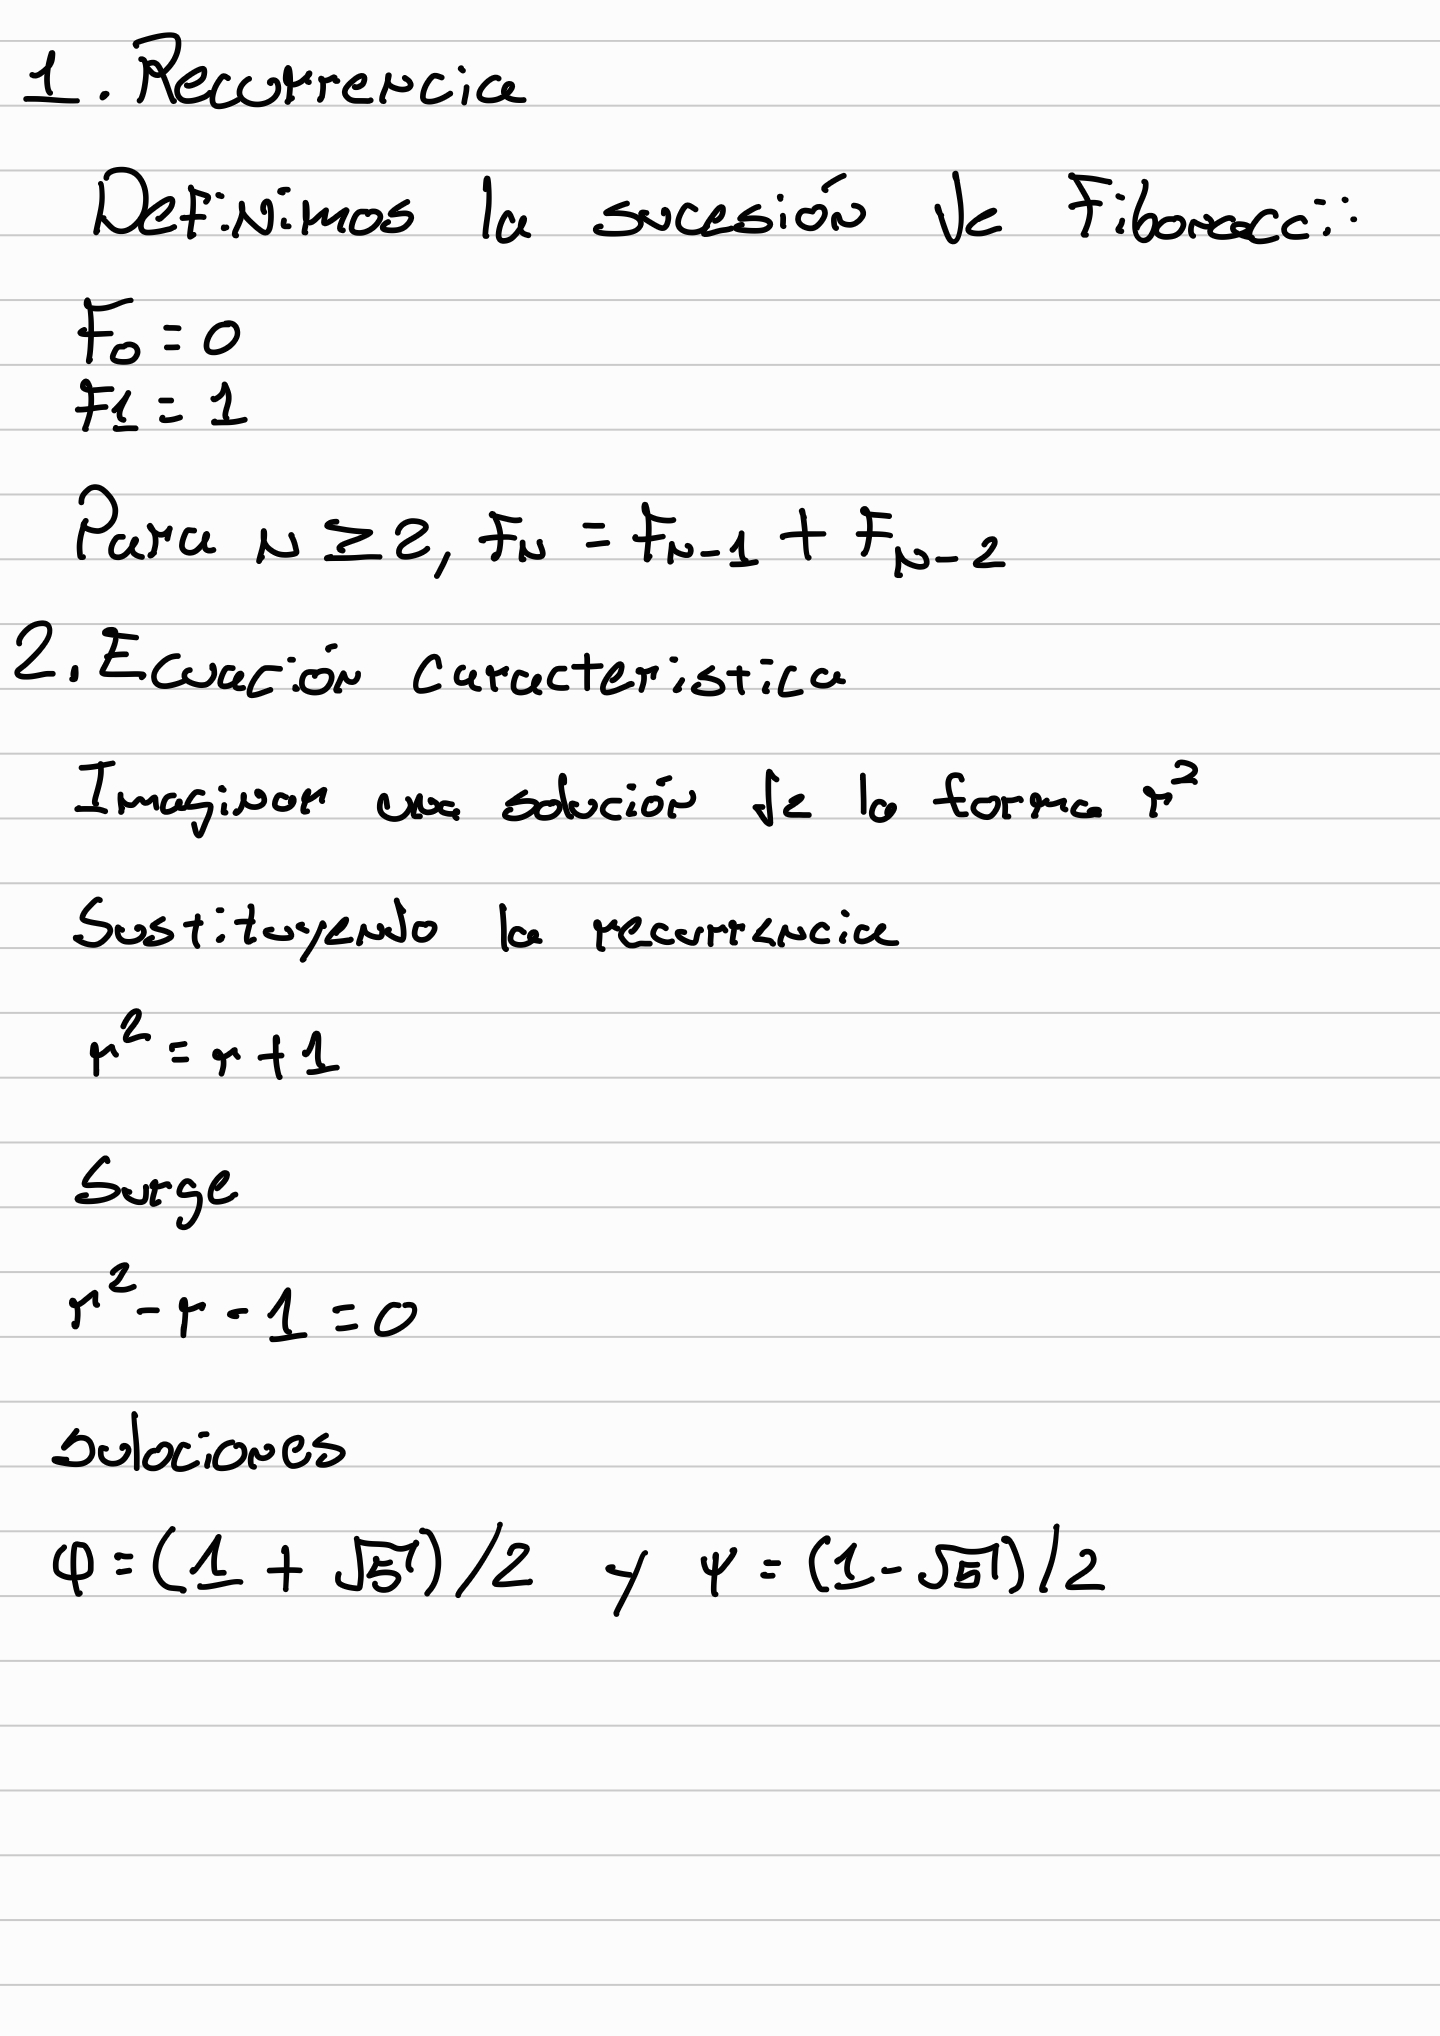 1. Recurrencia
Definimos la sucesión de Fibonacci:
F₀ = 0
F₁ = 1
Para N ≥ 2, Fₙ = Fₙ₋₁ + Fₙ₋₂
2. Ecuación caracteristica
Imaginar una solución de la forma r²
Sustituyendo la recurrencia
r² = r + 1
Surge
r² - r - 1 = 0
suluciones
φ = (1 + √5) / 2 y ψ = (1 - √5) / 2